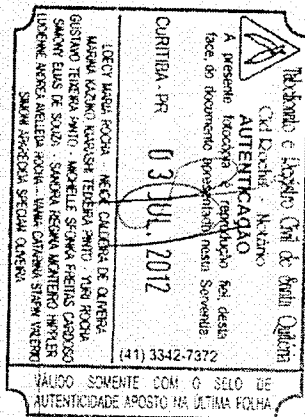 Tabelionato e Registro Civil de Santa Quitéria
Cid Rocha - Notário
AUTENTICAÇÃO
A presente fotocópia é reprodução fiel desta
face, do documento apresentado nesta Serventia.
CURITIBA - PR 03 JUL. 2012
(41) 3342-7372
LOECY MARIA ROCHA - NEIGE CALDEIRA DE OLIVEIRA
MARINA KAZUKO TEIXEIRA PINTO - YURI ROCHA
GUSTAVO TEIXEIRA PINTO - MICHELLE FREITAS CARDOSO
SIMONY ELIAS DE SOUZA - SANDRA REGINA MONTEIRO
LUCIENNE ANDREA AVELLEDA ROCHA - VANIA CATARINA
SIMONI APARECIDA OLIVEIRA
VÁLIDO SOMENTE COM O SELO DE
AUTENTICIDADE APOSTO NA ÚLTIMA FOLHA